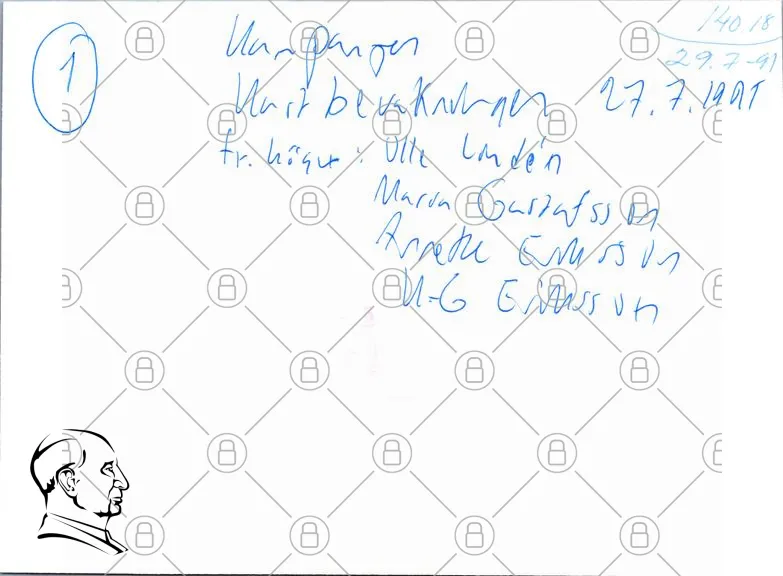 1
14018
29.7-91
Kampanjen
Kustbevakningen 27.7.1991
fr. höger: Olle Lindén
Maria Gustafsson
Anette Eriksson
K-G Eriksson